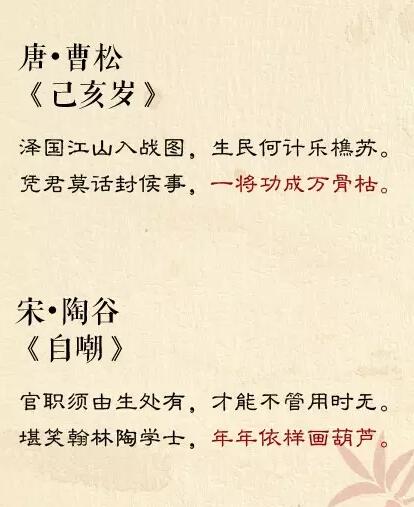 唐•曹松
《己亥岁》
泽国江山入战图，生民何计乐樵苏。
凭君莫话封侯事，一将功成万骨枯。
宋•陶谷
《自嘲》
官职须由生处有，才能不管用时无。
堪笑翰林陶学士，年年依样画葫芦。